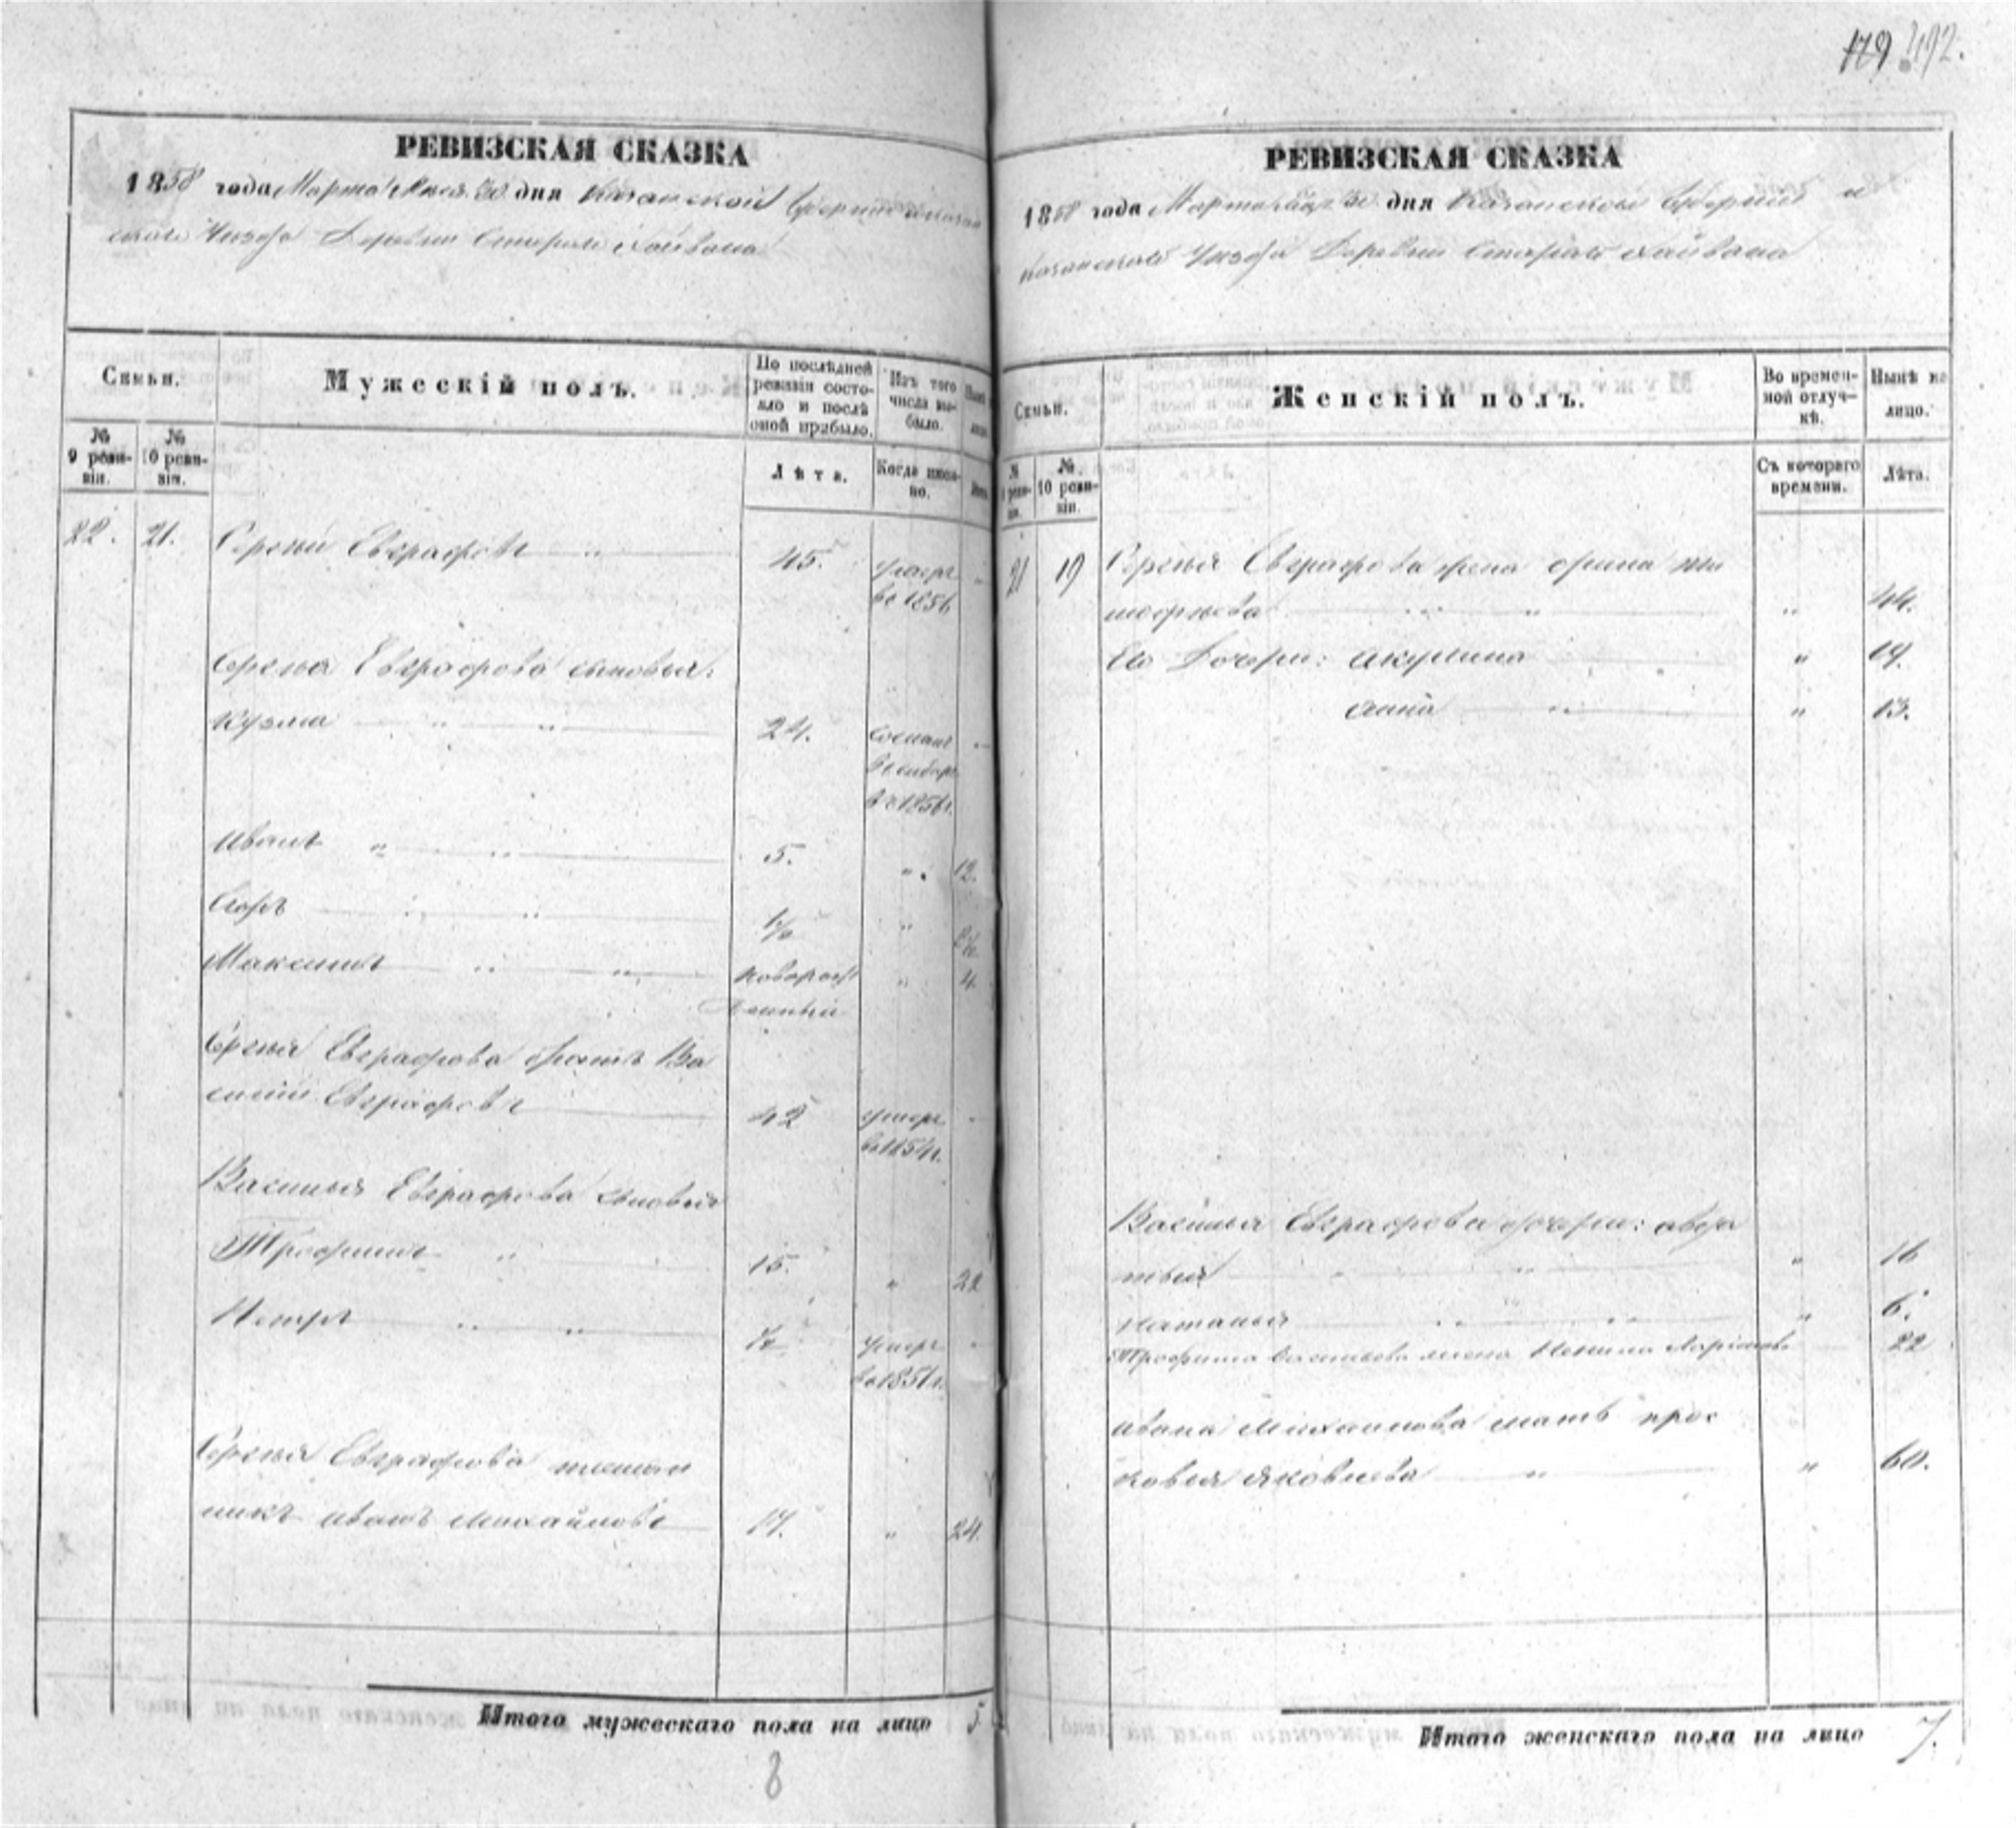 179 492.
РЕВИЗСКАЯ СКАЗКА
1858 года Марта дня Казанской Губернии и Казан
скаго Уѣзда Деревни Стараго
Семьи.
Мужескій полъ.
По послѣдней ревизіи состояло и послѣ оной прибыло.
Изъ того числа выбыло.
№ 9 ревизіи.
№ 10 ревизіи.
Лѣта.
Когда именно.
22. 21. Сергѣй Евграфовъ 45. умеръ
въ 1856
Сергѣя Евграфова сыновья:
Кузма 24. Сосланъ
въ Сибирь
въ 1856г.
Иванъ 5. " 12.
1/2 " 8 1/2
Максимъ новорож " 4.
денный
Сергѣя Евграфова братъ Ва
силій Евграфовъ 42 умеръ
въ 1854г.
Василья Евграфова сыновья
Трофимъ 15. " 22
Петръ 7. умеръ
въ 1851г.
Сергѣя Евграфова племян
никъ Иванъ Михайловъ 17. " 24.
Итого мужескаго пола на лицо 5.
8
РЕВИЗСКАЯ СКАЗКА
1858 года Марта дня Казанской Губерніи и
Казанскаго Уѣзда Деревни Стараго
Семьи.
Женскій полъ.
Во временной отлучкѣ.
Нынѣ на лицо.
№ 10 ревизіи.
Съ котораго времени.
Лѣта.
21 19 Сергѣя Евграфова жена Орина Ти
мофѣева " 44.
Его Дочери: Акулина " 19.
Анна " 13.
Василья Евграфова дочери: Авдо
тья " 16
Наталья " 6.
Трофима Васильева жена Ненила Ларіонова 22
Ивана Михайлова мать Прос
ковья Яковлева " 60.
Итого женскаго пола на лицо 7.